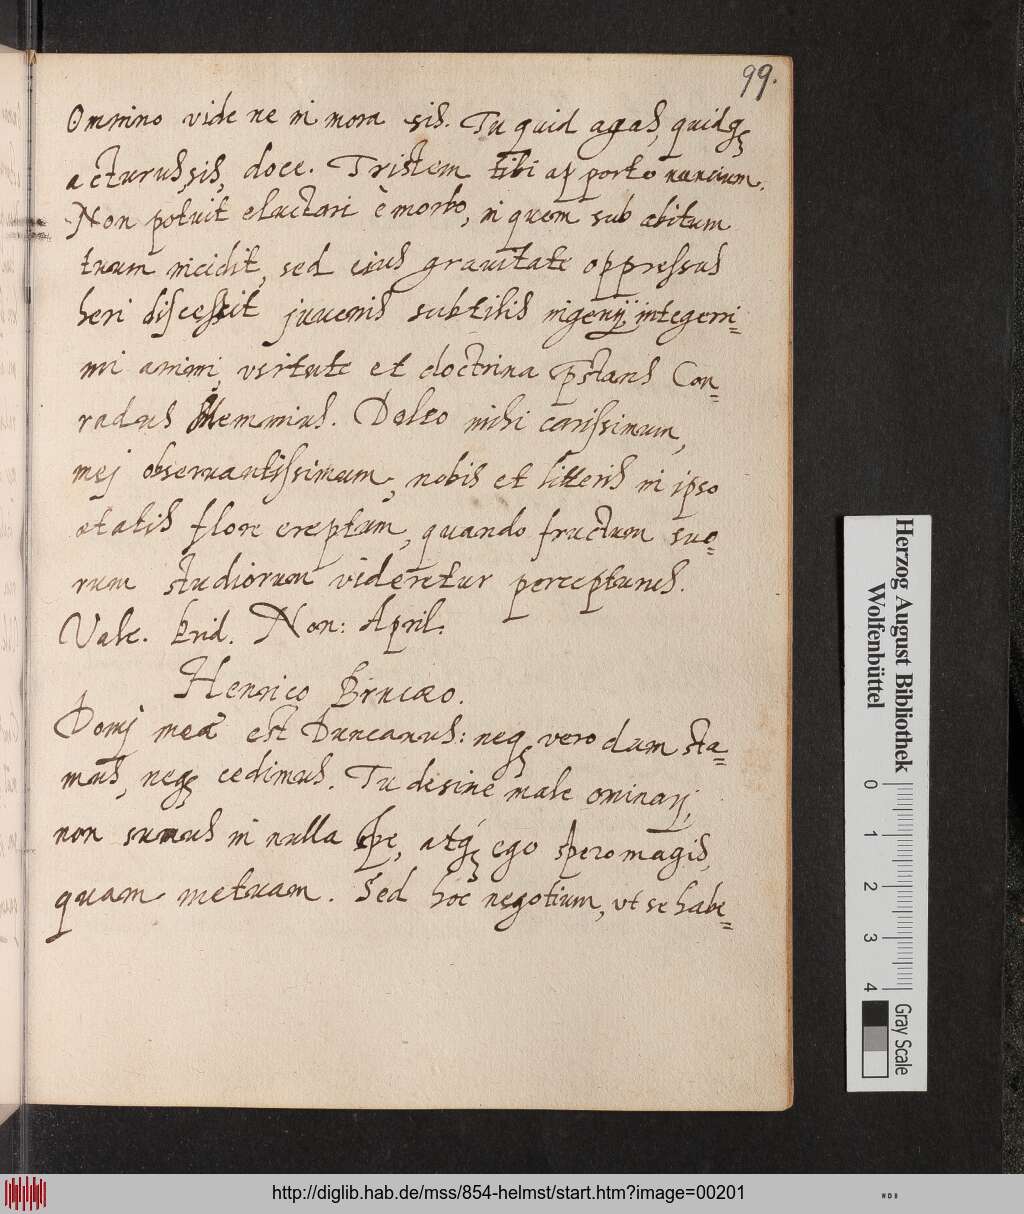 99.
Omnino vide ne in mora sis. Tu quid agas, quidq₃
acturus sis, doce. Tristem tibi apporto nuncium.
Non potuit eluctari è morbo, in quem sub abitum
tuum incidit, sed eius grauitate oppressus
heri discessit juuenis subtilis ingenij, integerri=
mi animi, virtute et doctrina pstans Con=
radus Memmius. Doleo mihi carissimum,
mej obseruantissimum, nobis et litteris in ipso
ætatis flore ereptum, quando fructum suo=
rum studiorum videretur percepturus.
Vale. Prid. Non: April.
Henrico Brucæo.
Domj meæ est Duncanus: neq₃ vero dum sta=
mus, neq₃ cedimus. Tu desine male ominarj,
non sumus in nulla spe, atq₃ ego spero magis,
quam metuam. Sed hoc negotium, vt se habe=
Herzog August Bibliothek
Wolfenbüttel
0 1 2 3 4
Gray Scale
http://diglib.hab.de/mss/854-helmst/start.htm?image=00201